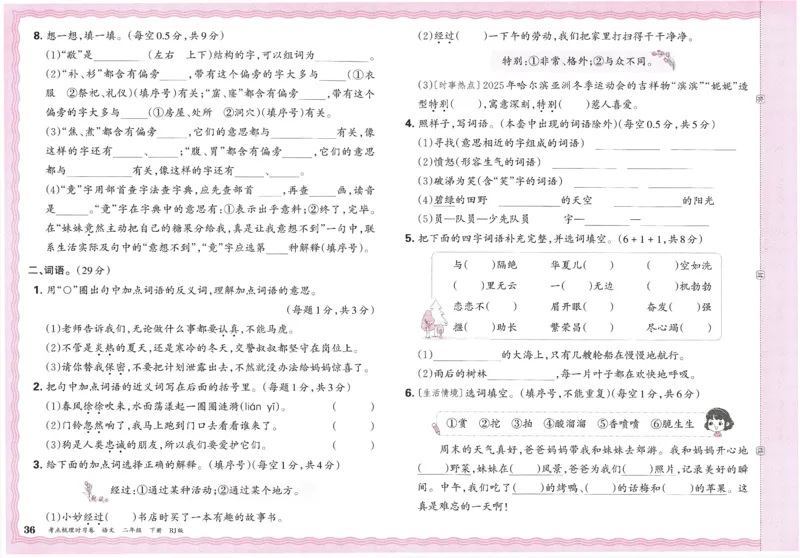 8. 想一想,填一填。(每空0.5分,共9分)
(1)“敲”是________(左右 上下)结构的字,可以组词为________。
(2)“补、衫”都含有偏旁____,带有这个偏旁的字大多与____(①衣
服 ②祭祀、礼仪)(填序号)有关;“窟、窿”都含有偏旁____,带有这个
偏旁的字大多与____(①房屋、处所 ②洞穴)(填序号)有关。
(3)“焦、煮”都含有偏旁____,它们的意思都与________有关,像
这样的字还有____、____;“腹、胃”都含有偏旁____,它们的意思
都与________有关,像这样的字还有____、____。
(4)“竟”字用部首查字法查字典,应先查部首____,再查____画,读音
是____。“竟”字在字典中的意思有:①表示出乎意料;②终了,完毕。
在“妹妹竟然主动把自己的糖果分给我,真是让我意想不到”一句中,联
系生活实际及句中的“意想不到”,“竟”字应选第____种解释(填序号)。
二、词语。(29分)
1. 用“○”圈出句中加点词语的反义词,理解加点词语的意思。
(每题1分,共3分)
(1)老师告诉我们,无论做什么事都要认真,不能马虎。
(2)不管是炎热的夏天,还是寒冷的冬天,交警叔叔都坚守在岗位上。
(3)请你替我保密,不要把计划泄露出去,不然就没办法给妈妈惊喜了。
2. 把句中加点词语的近义词写在后面的括号里。(每题1分,共3分)
(1)春风徐徐吹来,水面荡漾起一圈圈涟漪(lián yī)。 ( )
(2)门铃忽然响了,我马上跑到门口去看看谁来了。 ( )
(3)狗是人类忠诚的朋友,所以我们要爱护它们。 ( )
3. 给下面的加点词选择正确的解释。(填序号)(每空1分,共4分)
经过:①通过某种活动;②通过某个地方。
(1)小妙经过( )书店时买了一本有趣的故事书。
36 考点梳理时习卷 语文 二年级 下册 RJ版
(2)经过( )一下午的劳动,我们把家里打扫得干干净净。
特别:①非常、格外;②与众不同。
(3)[时事热点]2025年哈尔滨亚洲冬季运动会的吉祥物“滨滨”“妮妮”造
型特别( ),寓意深刻,特别( )惹人喜爱。
4. 照样子,写词语。(本套中出现的词语除外)(每空0.5分,共5分)
(1)寻找(意思相近的字组成的词语) ________ ________ ________
(2)愤怒(形容生气的词语) ________ ________
(3)破涕为笑(含“笑”字的词语) ________ ________
(4)碧绿的田野 ________的天空 ________的阳光
(5)员—队员—少先队员 字—________—________
5. 把下面的四字词语补充完整,并选词填空。(6+1+1,共8分)
与( )隔绝 华夏儿( ) ( )空如洗
( )里无云 一( )无边 ( )机勃勃
恋恋不( ) 眉开眼( ) 奋发( )强
揠( )助长 繁荣昌( ) 尽心竭( )
(1)________的大海上,只有几艘轮船在慢慢地航行。
(2)雨后的树林________,每一片叶子都在欢快地呼吸。
6. [生活情境]选词填空。(填序号,不能重复)(每空1分,共6分)
①赏 ②挖 ③拍 ④酸溜溜 ⑤香喷喷 ⑥脆生生
周末的天气真好,爸爸妈妈带我和妹妹去郊游。我和妈妈开心地
( )野菜,妹妹在( )风景,爸爸为我们( )照片,记录美好的瞬
间。中午,我们吃了( )的烤鸭、( )的话梅和( )的苹果。这
真是难忘的一天啊!